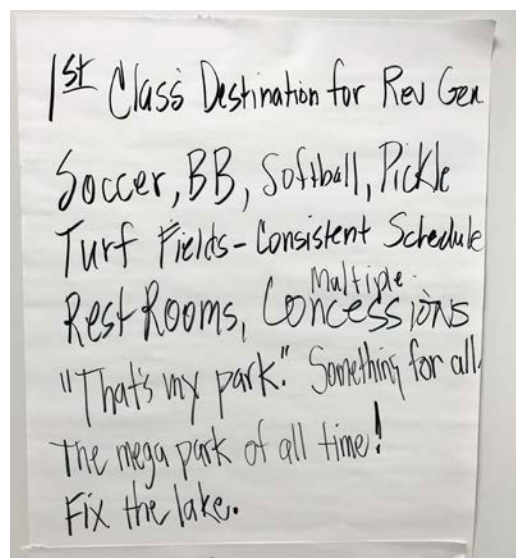 1st Class Destination for Rev Gen
Soccer, BB, Softball, Pickle
Turf Fields - Consistent Schedule
Multiple
Rest Rooms, Concessions
"That's my park." Something for all.
The mega park of all time!
Fix the lake.